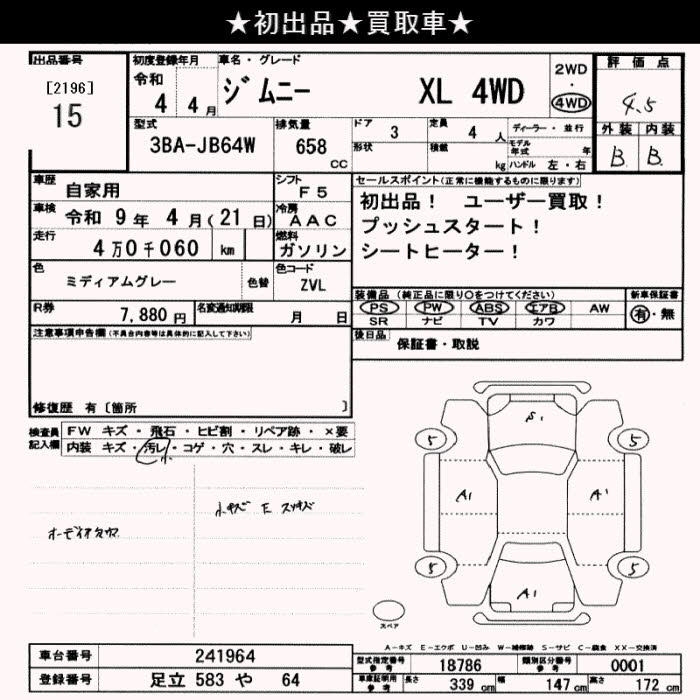 ★初出品★買取車★
出品番号
[2196]
15
初度登録年月
令和
4 4月
車名・グレード
ジムニー XL 4WD
2WD
・
4WD
評価点
4.5
外装 内装
B B
型式
3BA-JB64W
排気量
658
cc
ドア
3
形状
定員
4 人
積載
kg
ディーラー・並行
モデル年式 年
ハンドル 左・右
車歴
自家用
シフト
F5
車検
令和 9年 4月(21日)
冷房
AAC
走行
4万0千060 km
燃料
ガソリン
色
ミディアムグレー
色替
色コード
ZVL
R券
7,880円
名変通知期限
月 日
セールスポイント(正常に機能するものに限ります)
初出品! ユーザー買取!
プッシュスタート!
シートヒーター!
装備品 (純正品に限り○をつけてください)
PS PW ABS エアB AW
SR ナビ TV カワ
新車保証書
有・無
後日品
保証書・取説
注意事項申告欄(不具合内容等は具体的に記入して下さい)
修復歴 有〔箇所 〕
検査員記入欄
FW キズ・飛石・ヒビ割・リペア跡・×要
内装 キズ・汚レ・コゲ・穴・スレ・キレ・破レ
小キズ E スリキズ
S1
5 5
A1 A1
5 5
A1
スペア
A-キズ E-エクボ U-凹み W-補修跡 S-サビ C-腐食 XX-交換済
車台番号
241964
登録番号
足立 583 や 64
型式指定番号
参考
18786
類別区分番号
参考
0001
車庫証明用
参考
長さ 339 cm 幅 147 cm 高さ 172 cm